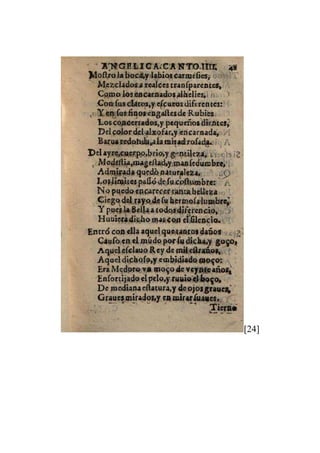 ANGELICA. CANTO. IIII. 28
Mostro la boca, y labios carmesies,
Mezclados a realces transparentes,
Como los encarnados alhelies,
Con sus claros, y escuros diferentes:
Y en sus finos engastes de Rubies
Los concertados, y pequeños dientes,
Del color del alxofar, y encarnada,
Barua redonda, a la mitad rosada.
Del ayre, cuerpo, brio, y gentileza,
Modestia, magestad, y mansedumbre,
Admirada quedò naturaleza,
Los limites passò de su costumbre:
No puedo encarecer tanta belleza
Ciego del rayo de su hermosa lumbre,
Y pues la Bella a todos diferencio,
Huuiera dicho mas con el silencio.
Entrò con ella aquel que tantos daños
Causo en el mũdo por su dicha, y goço,
Aquel esclauo Rey de mil estraños,
Aquel dichoso, y embidiado moço:
Era Medoro vn moço de veynte años,
Ensortijado el pelo, y ruuio el boço,
De mediana estatura, y de ojos graues,
Graues mirados, y en mirar suaues.
Tierno
[24]